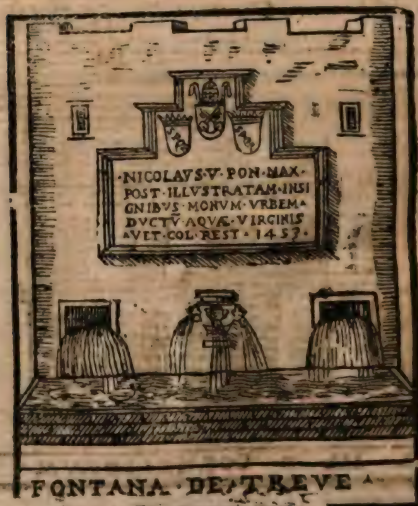 SPQR SPQR
·NICOLAVS·V·PON·MAX·
POST·ILLVSTRATAM·INSI
GNIBVS·MONVM·VRBEM·
DVCTV̄·AQVÆ·VIRGINIS
·VET·COL·REST·1453·
FONTANA·DE·TREVE·